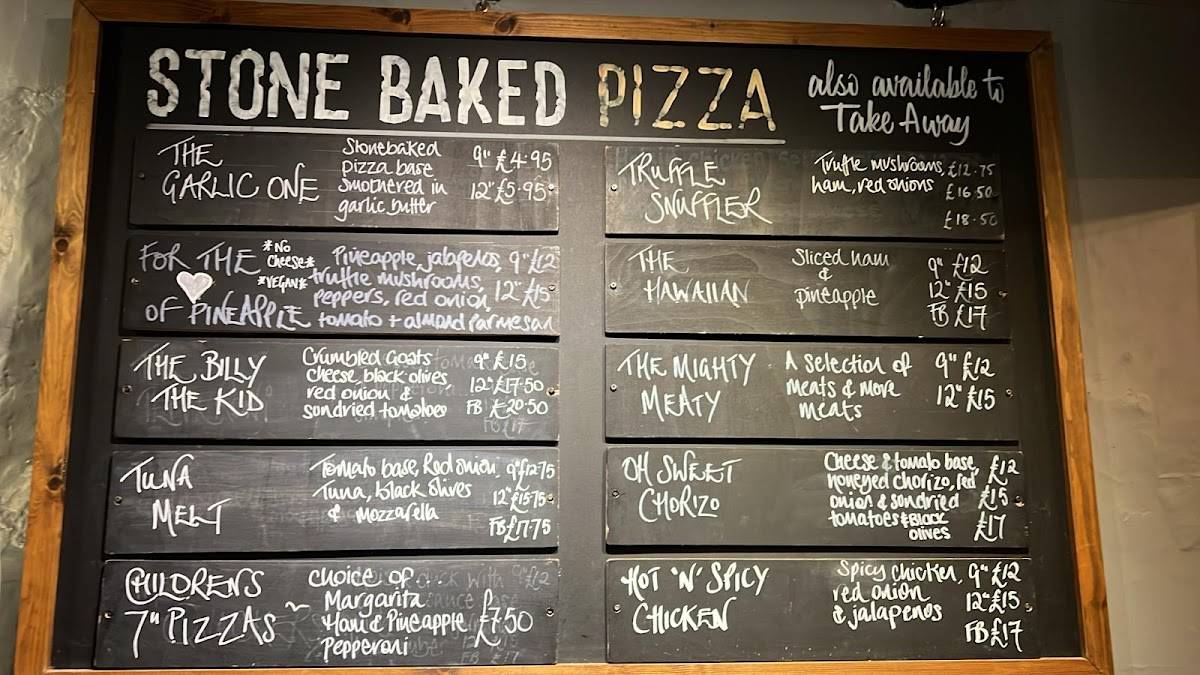 STONE BAKED PIZZA
also available to
Take Away
THE
GARLIC ONE
Stonebaked
pizza base
smothered in
garlic butter
9" £4.95
12" £5.95
FOR THE
OF PINEAPPLE
*No
Cheese*
*VEGAN*
Pineapple, jalapenos,
truffle mushrooms,
peppers, red onion,
tomato + almond parmesan
9" £12
12" £15
THE BILLY
THE KID
Crumbled Goats
cheese, black olives,
red onion &
sondried tomatoes
9" £15
12" £17.50
FB £20.50
TUNA
MELT
Tomato base, Red onion,
Tuna, black olives
& mozzarella
9" £12.75
12" £15.75
FB £17.75
CHILDREN'S
7" PIZZAS ~
choice of
Margarita
Ham & Pineapple
Pepperoni
£7.50
TRUFFLE
SNUFFLER
Truffle mushrooms,
ham, red onions
£12.75
£16.50
£18.50
THE
HAWAIIAN
Sliced ham
&
pineapple
9" £12
12" £15
FB £17
THE MIGHTY
MEATY
A selection of
meats & more
meats
9" £12
12" £15
OH SWEET
CHORIZO
Cheese & tomato base,
honeyed chorizo, red
onion & sondried
tomatoes & Black
olives
£12
£15
£17
HOT 'N' SPICY
CHICKEN
Spicy chicken,
red onion
& jalapenos
9" £12
12" £15
FB £17